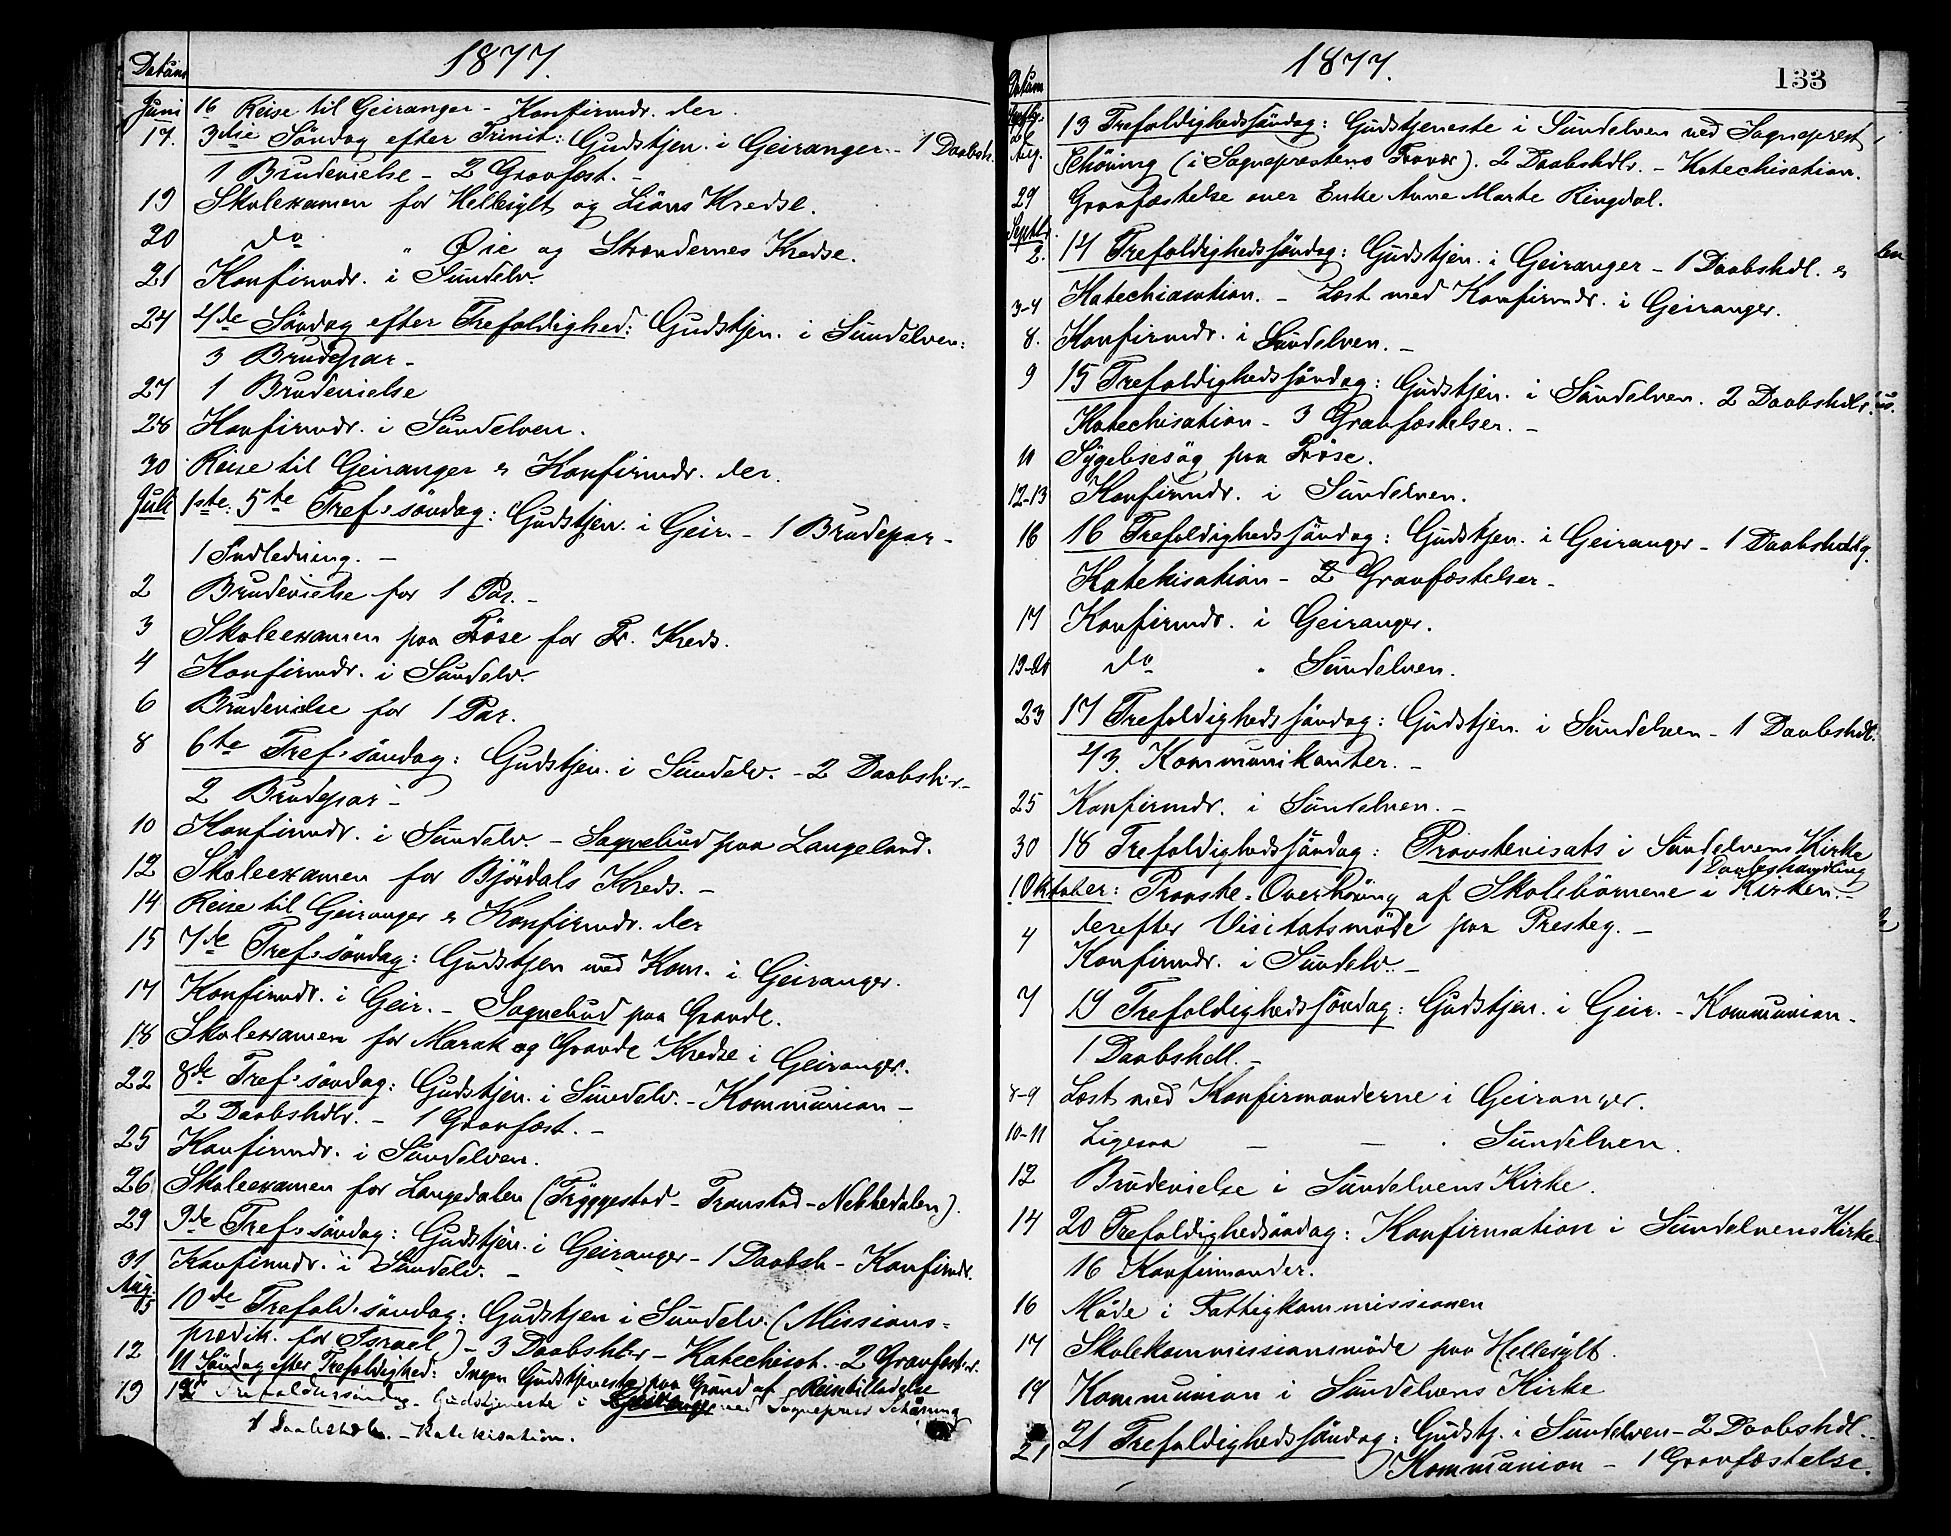 Datum 1877.
Juni 16 Reise til Geiranger - Konfirmdr. der.
17. 3die Söndag efter Trinit: Gudstjen. i Geiranger - 1 Daabsh.
1 Brudevielse - 2 Gravfæst. -
19 Skoleexamen for Hellesylt og Liöns Kredse.
20 do " Øie og Strandernes Kredse.
21 Konfirmdr. i Sundelv.
24 4de Söndag efter Trefoldighed: Gudstjen. i Sundelven:
3 Brudepar -
27 1 Brudevielse
28 Konfirmdr. i Sundelven.
30 Reise til Geiranger & Konfirmdr. der.
Juli 1ste: 5te Tref.söndag: Gudstjen. i Geir. - 1 Brudepar -
1 Indledning. -
2 Brudevielse for 1 Par. -
3 Skoleexamen paa Tröse for Tr. Kreds.
4 Konfirmdr. i Sundelv.
6 Brudevielse for 1 Par.
8 6te Tref.söndag: Gudstjen. i Sundelv. - 2 Daabsh-r. -
2 Brudepar -
10 Konfirmdr. i Sundelv. - Sognebud paa Langeland.
12 Skoleexamen for Björdals Kreds. -
14 Reise til Geiranger & Konfirmdr. der
15 7de Tref.söndag: Gudstjen med Kom. i Geiranger.
17 Konfirmdr. i Geir. - Sognebud paa Grande.
18 Skoleexamen for Marak og Grande Kredse i Geiranger.
22 8de Tref.söndag: Gudstjen. i Sundelv. - Kommunion -
2 Daabshdlr. - 1 Gravfæst. -
25 Konfirmdr. i Sundelven.
26 Skoleexamen for Langedalen (Tryggestad - Tronstad - Nebbedalen).
29 9de Tref.söndag: Gudstjen. i Geiranger - 1 Daabsh - Konfirmdr.
31 Konfirmdr. i Sundelv. -
Aug: 5 10de Trefold.söndag: Gudstjen i Sundelv. (Missions=
prædik. for Israel) - 3 Daabshdl-r - Katechisat. - 2 Gravfæst-r.
12 11 Söndag efter Trefoldighed: Ingen Gudstjeneste paa Grund af
19 12 Trefoldsöndag - Gudstjeneste i ved Sogneprest Schöning
Daabshdl. - Katekisation.
Datum 1877. 133
Aug. 13 Trefoldighedssöndag: Gudstjeneste i Sundelven ved Sogneprest
Schöning (i Sogneprestens Fravær). 2 Daabshdlr. - Katechisation.
29 Gravfæstelse over Enke Anne Marte Ringdal.
Septbr.
2. 14 Trefoldighedssöndag: Gudstjen. i Geiranger - 1 Daabshdl. &
Katechisation. -
3-4 Læst med Konfirmdr. i Geiranger.
8. Konfirmdr. i Sundelven. -
9 15 Trefoldighedssöndag: Gudstjen. i Sundelven. 2 Daabshdlr.
Katechisation - 3 Gravfæstelser. -
11 Sygebesög paa Tröse.
12-13 Konfirmdr. i Sundelven.
16 16 Trefoldighedssöndag: Gudstjen. i Geiranger - 1 Daabshdlg.
Katekisation - 2 Gravfæstelser -
17 Konfirmdr. i Geiranger.
19-20 do " Sundelven.
23 17 Trefoldighedssöndag: Gudstjen. i Sundelven - 1 Daabshdl.
43. Kommunikanter. -
25 Konfirmdr. i Sundelven. -
30 18 Trefoldighedssöndag: Provstevisats i Sundelvens Kirke
1 Daabshandling
1 Oktober: Provste-Overhöring af Skolebörnene i Kirken. -
derefter Visitatsmöde paa Presteg. -
4 Konfirmdr. i Sundelv. -
7 19 Trefoldighedssöndag: Gudstjen. i Geir. - Kommunion -
1 Daabshdl. -
8-9 Læst med Konfirmanderne i Geiranger.
10-11 Ligesaa - - " Sundelven.
12 Brudevielse i Sundelvens Kirke.
14 20 Trefoldighedsöndag: Konfirmation i Sundelvens Kirke -
16 Konfirmander.
16 Möde i Fattigkommissionen
17 Skolekommissionsmöde paa Hellesylt.
19 Kommunion i Sundelvens Kirke
21 21 Trefoldighedssöndag: Gudstj. i Sundelven - 2 Daabshdl. -
Kommunion - 1 Gravfæstelse.